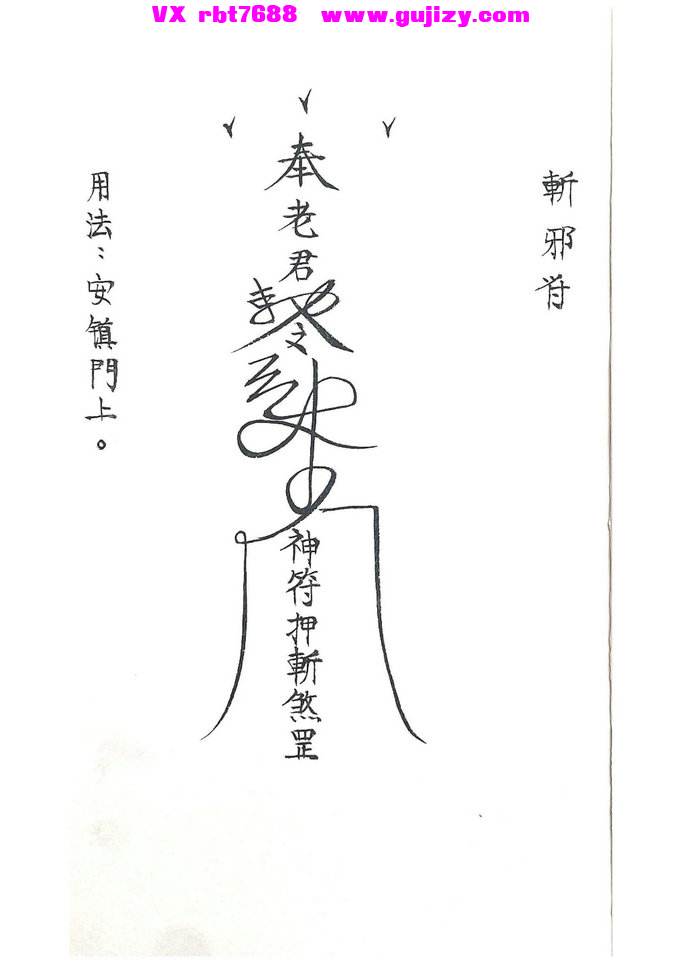 VX rbt7688 www.gujizy.com
斬邪符
奉老君
神符押斬煞罡
用法：安鎮門上。